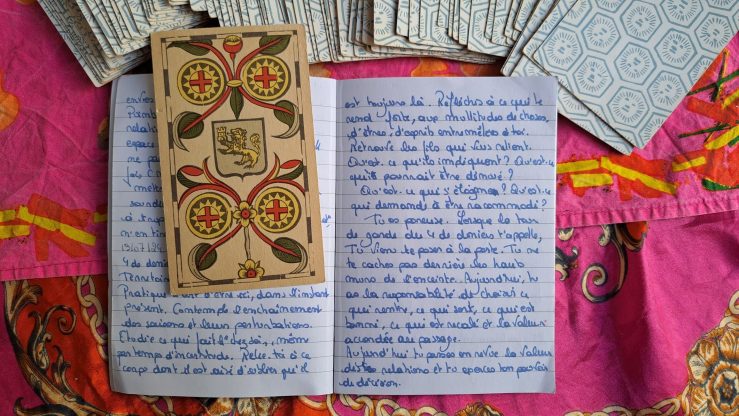 envies
relati
espace
me pa
sounda
à trop
m'en tire
4 de denie
Territoire
Pratique l'art d'être ici, dans l'instant
Présent. Contemple l'enchaînement
des saisons et leurs perturbations.
Etudie ce qui fait l'espoir, même
par temps d'incertitude. Relie-toi à ce
corps dont il est aisé d'oublier qu'il
est toujours là. Réfléchis à ce qui te
rend forte, aux multitudes de choses,
d'êtres, d'esprits entremêlées à toi.
Retrouve les fils qui vous relient.
Qu'est-ce qu'ils impliquent? Qu'est-ce
qu'ils pourrait être dénoué?
Qu'est-ce qui s'éloigne? Qu'est-ce
qui demande à être raccommodé?
Tu es penseuse. Lorsque la tour
de garde du 4 de deniers t'appelle,
Tu viens te poser à la porte. Tu ne
te caches pas derrière les hauts
murs de l'enceinte. Aujourd'hui, tu
as la responsabilité de choisir ce
qui rentre, ce qui sort, ce qui est
banni, ce qui est recalé et la valeur
accordée au passage.
Aujourd'hui tu passes en revue la valeur
des relations et tu exerces ton pouvoir
de décision.